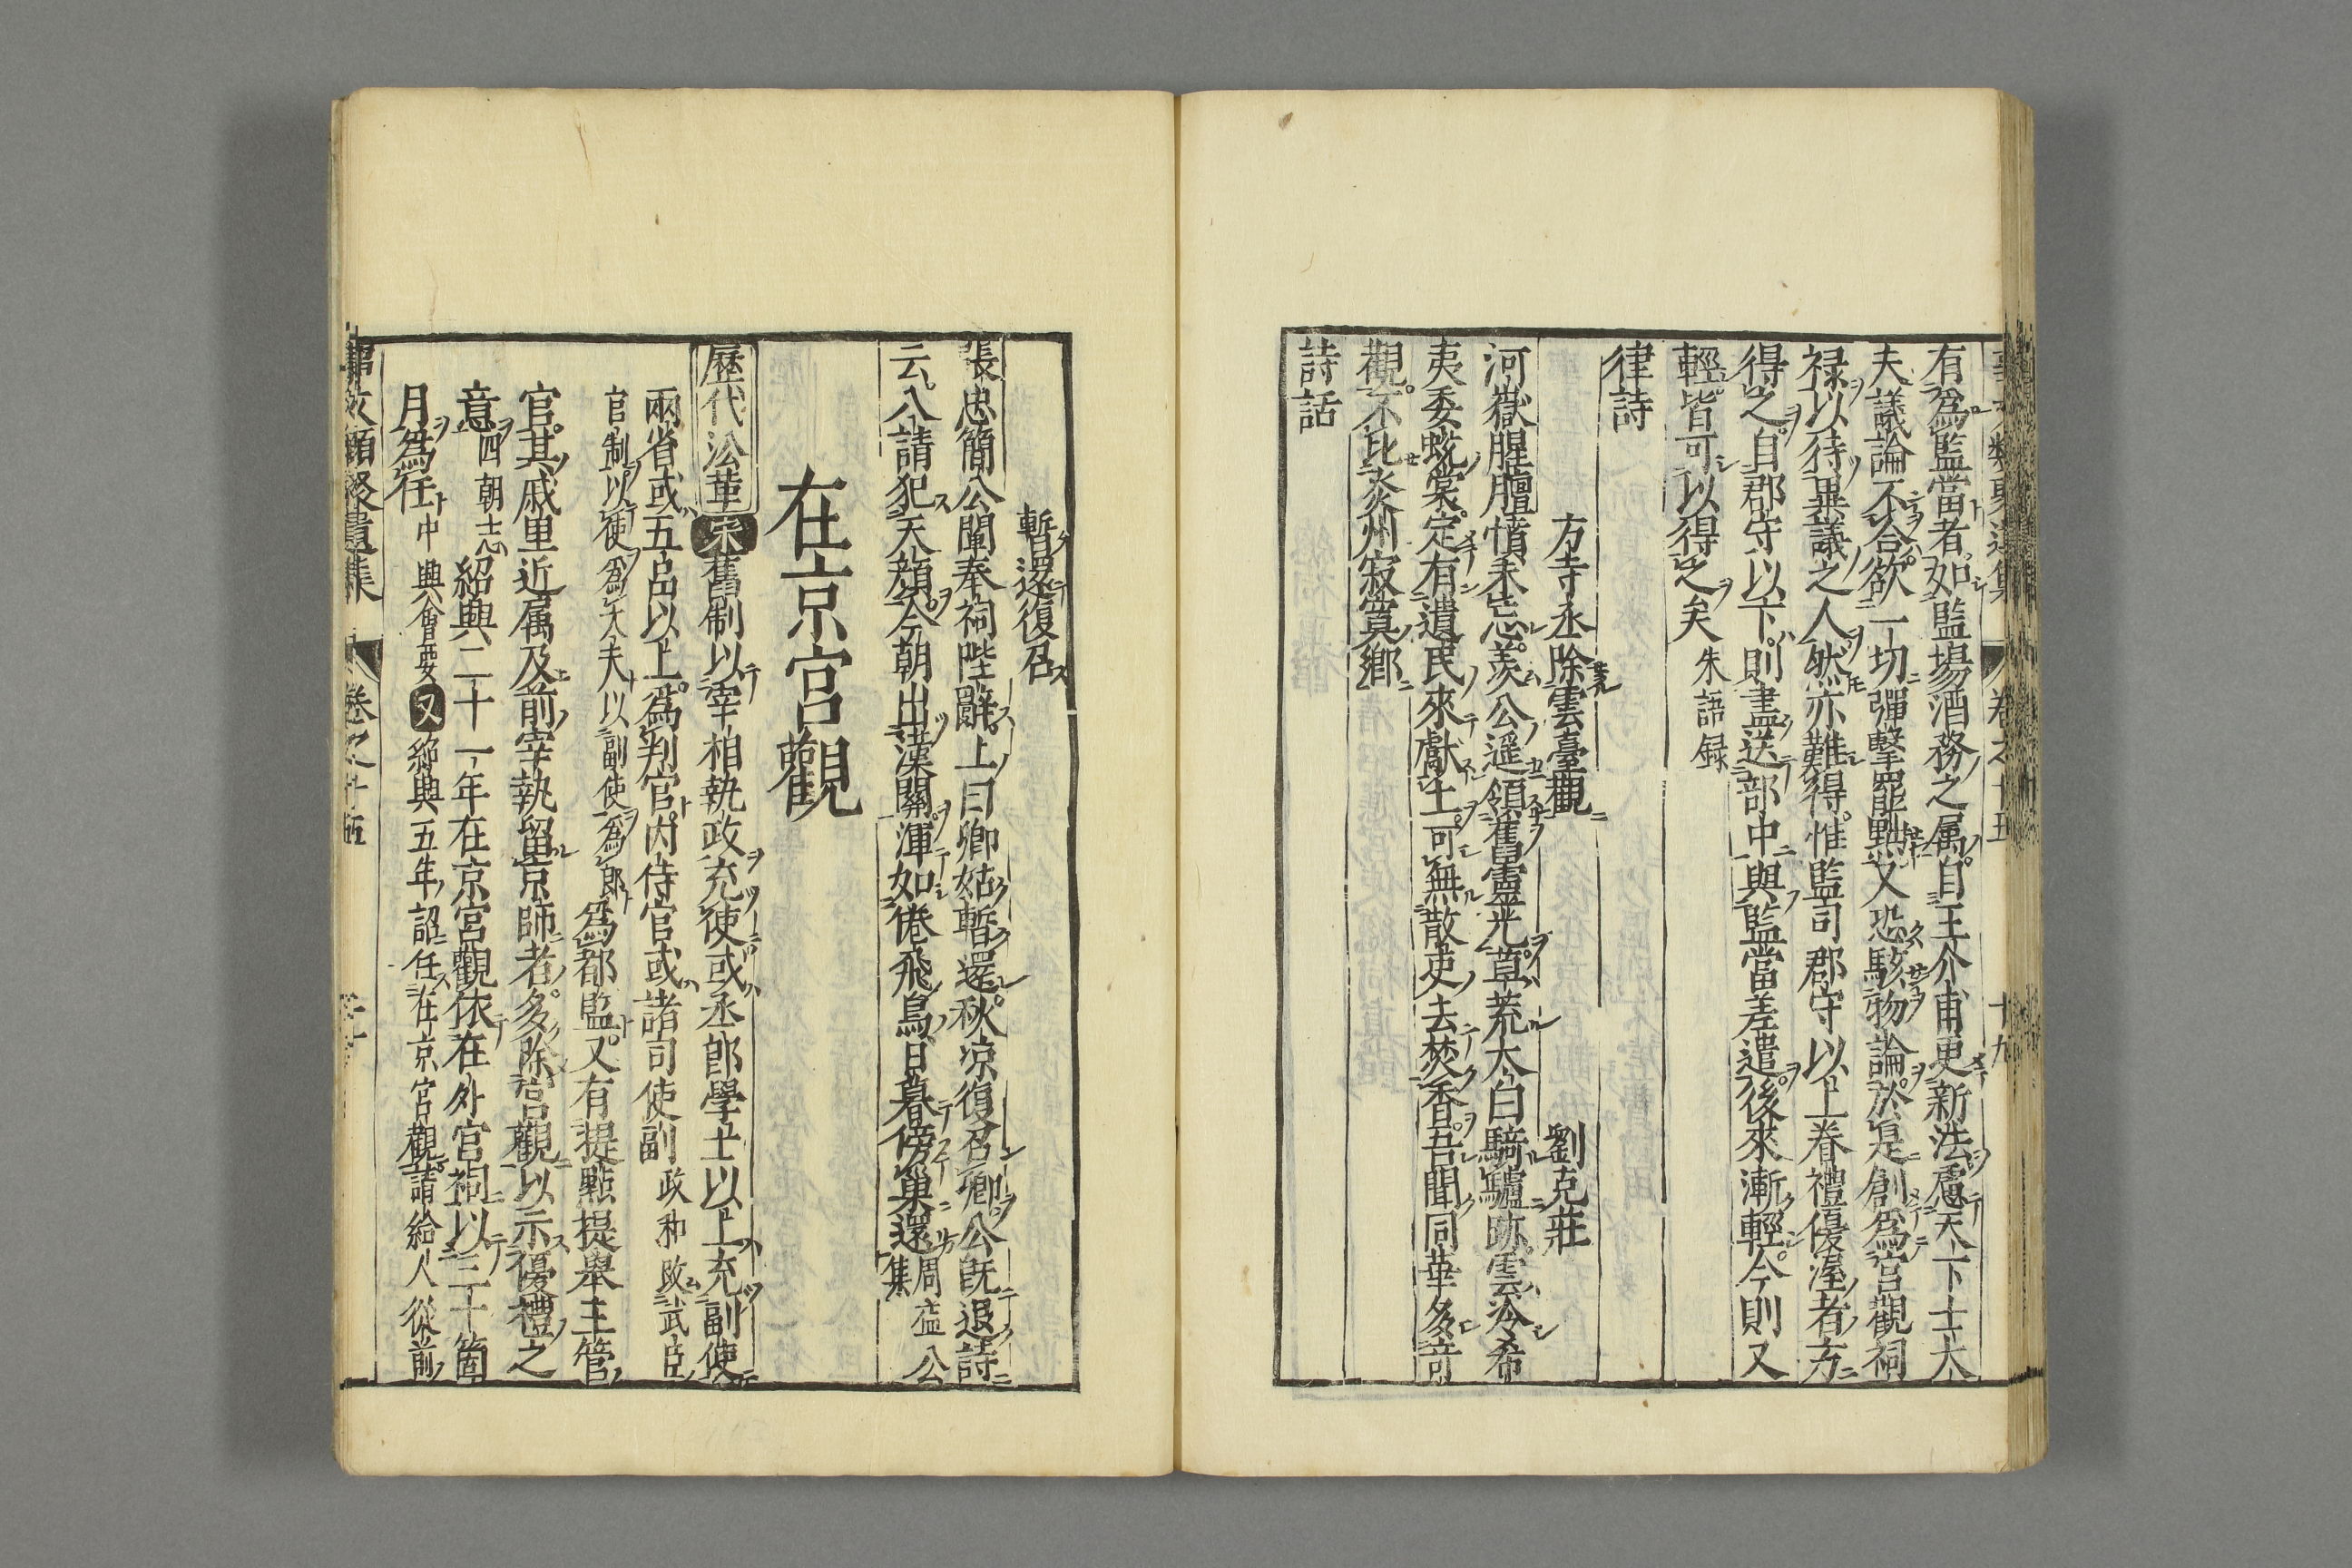 有爲監當者如監場酒務之属自王介甫更新法慮天下士大
夫議論不合欲一切彈擊罷黜又恐駭物論於是創爲宮觀祠
禄以待異議之人然亦難得惟監司郡守以上眷禮優渥者方
得之自郡守以下則盡送部中與監當差遣後來漸輕今則又
輕皆可以得之矣朱語録
律詩
方寺丞除雲臺觀 劉克莊
河嶽腥膻憤未忘羨公遥領舊靈光草荒太白騎驢跡雲冷希
夷委蛻裳定有遺民來獻土可無散吏去焚香吾聞同華多竒
觀不比炎州寂寞郷
詩話
暫還復召
張忠簡公闡奉祠陛辭上曰卿姑暫還秋凉復召卿公既退詩
云八請犯天顔今朝出漢關渾如倦飛鳥日暮傍巢還周益公集
在京宮觀
歷代沿革宋舊制以宰相執政充使或丞郎學士以上充副使
兩省或五品以上爲判官内侍官或諸司使副政和改武臣
官制以使爲大夫以副使爲郎爲都監又有提點提舉主管
官其戚里近属及前宰執留京師者多除宮觀以示優禮之
意四朝志紹興二十一年在京宮觀依在外宮祠以三十箇
月爲任中興會要又紹興五年詔任在京宮觀請給人從前
事文類聚遺集 卷之十五